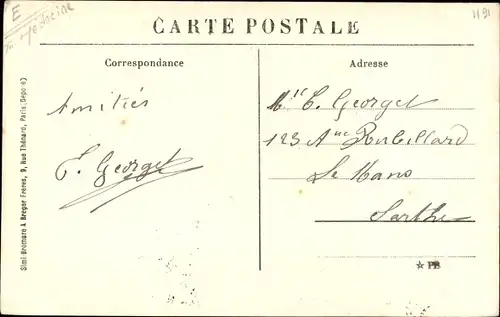 E
Médecine
1191
CARTE POSTALE
Correspondance
Adresse
Amitiés
E. Georget
Mlle E. Georget
123 Aue Rubillard
Le Mans
Sarthe
Simi-Bromure A. Breger Frères, 9, Rue Thénard, Paris (Déposé)
☆ PB